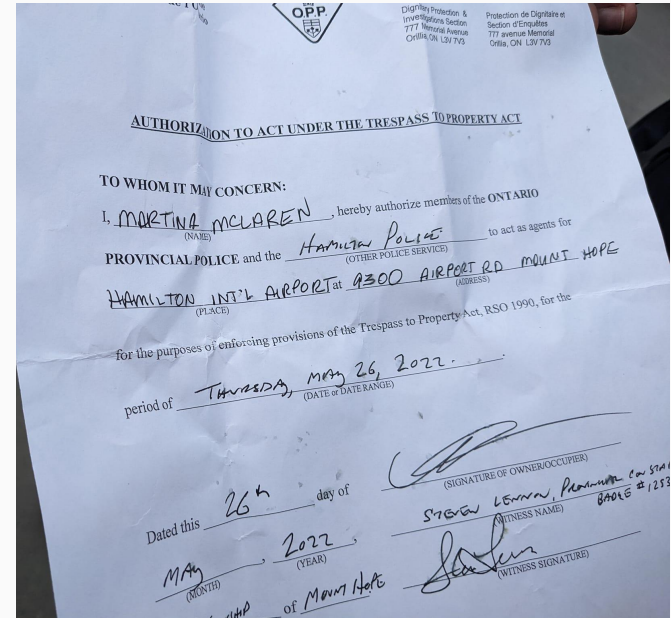 O.P.P.
Dignitary Protection &
Investigations Section
777 Memorial Avenue
Orillia, ON L3V 7V3
Protection de Dignitaire et
Section d'Enquêtes
777 avenue Memorial
Orillia, ON L3V 7V3
AUTHORIZATION TO ACT UNDER THE TRESPASS TO PROPERTY ACT
TO WHOM IT MAY CONCERN:
I, MARTINA MCLAREN, hereby authorize members of the ONTARIO
(NAME)
PROVINCIAL POLICE and the HAMILTON POLICE to act as agents for
(OTHER POLICE SERVICE)
HAMILTON INT'L AIRPORT at 9300 AIRPORT RD MOUNT HOPE
(PLACE) (ADDRESS)
for the purposes of enforcing provisions of the Trespass to Property Act, RSO 1990, for the
period of THURSDAY, MAY 26, 2022.
(DATE or DATE RANGE)
Dated this 26th day of
(SIGNATURE OF OWNER/OCCUPIER)
MAY, 2022,
(MONTH) (YEAR)
STEVEN LENNON, PROVINCIAL CONSTA
BADGE #1253
(WITNESS NAME)
(WITNESS SIGNATURE)
of MOUNT HOPE